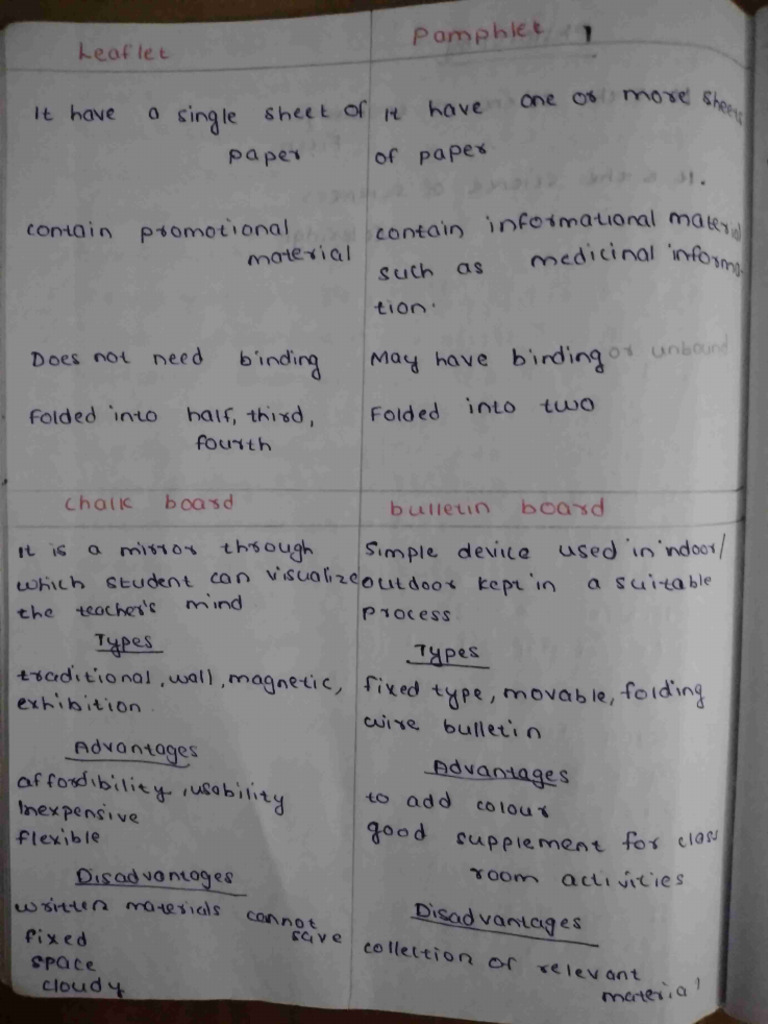 Leaflet
Pamphlet
It have a single sheet of
paper
It have one or more sheets
of paper
contain promotional
material
contain informational material
such as medicinal informa-
tion.
Does not need binding
May have binding or unbound
Folded into half, third,
fourth
Folded into two
chalk board
It is a mirror through
which student can visualize
the teacher's mind
Types
traditional, wall, magnetic,
exhibition.
Advantages
affordibility, usability
Inexpensive
flexible
Disadvantages
written materials cannot
save
fixed
space
cloudy
bulletin board
Simple device used in indoor/
outdoor kept in a suitable
process
Types
fixed type, movable, folding
wire bulletin
Advantages
to add colour
good supplement for class
room activities
Disadvantages
collection of relevant
material